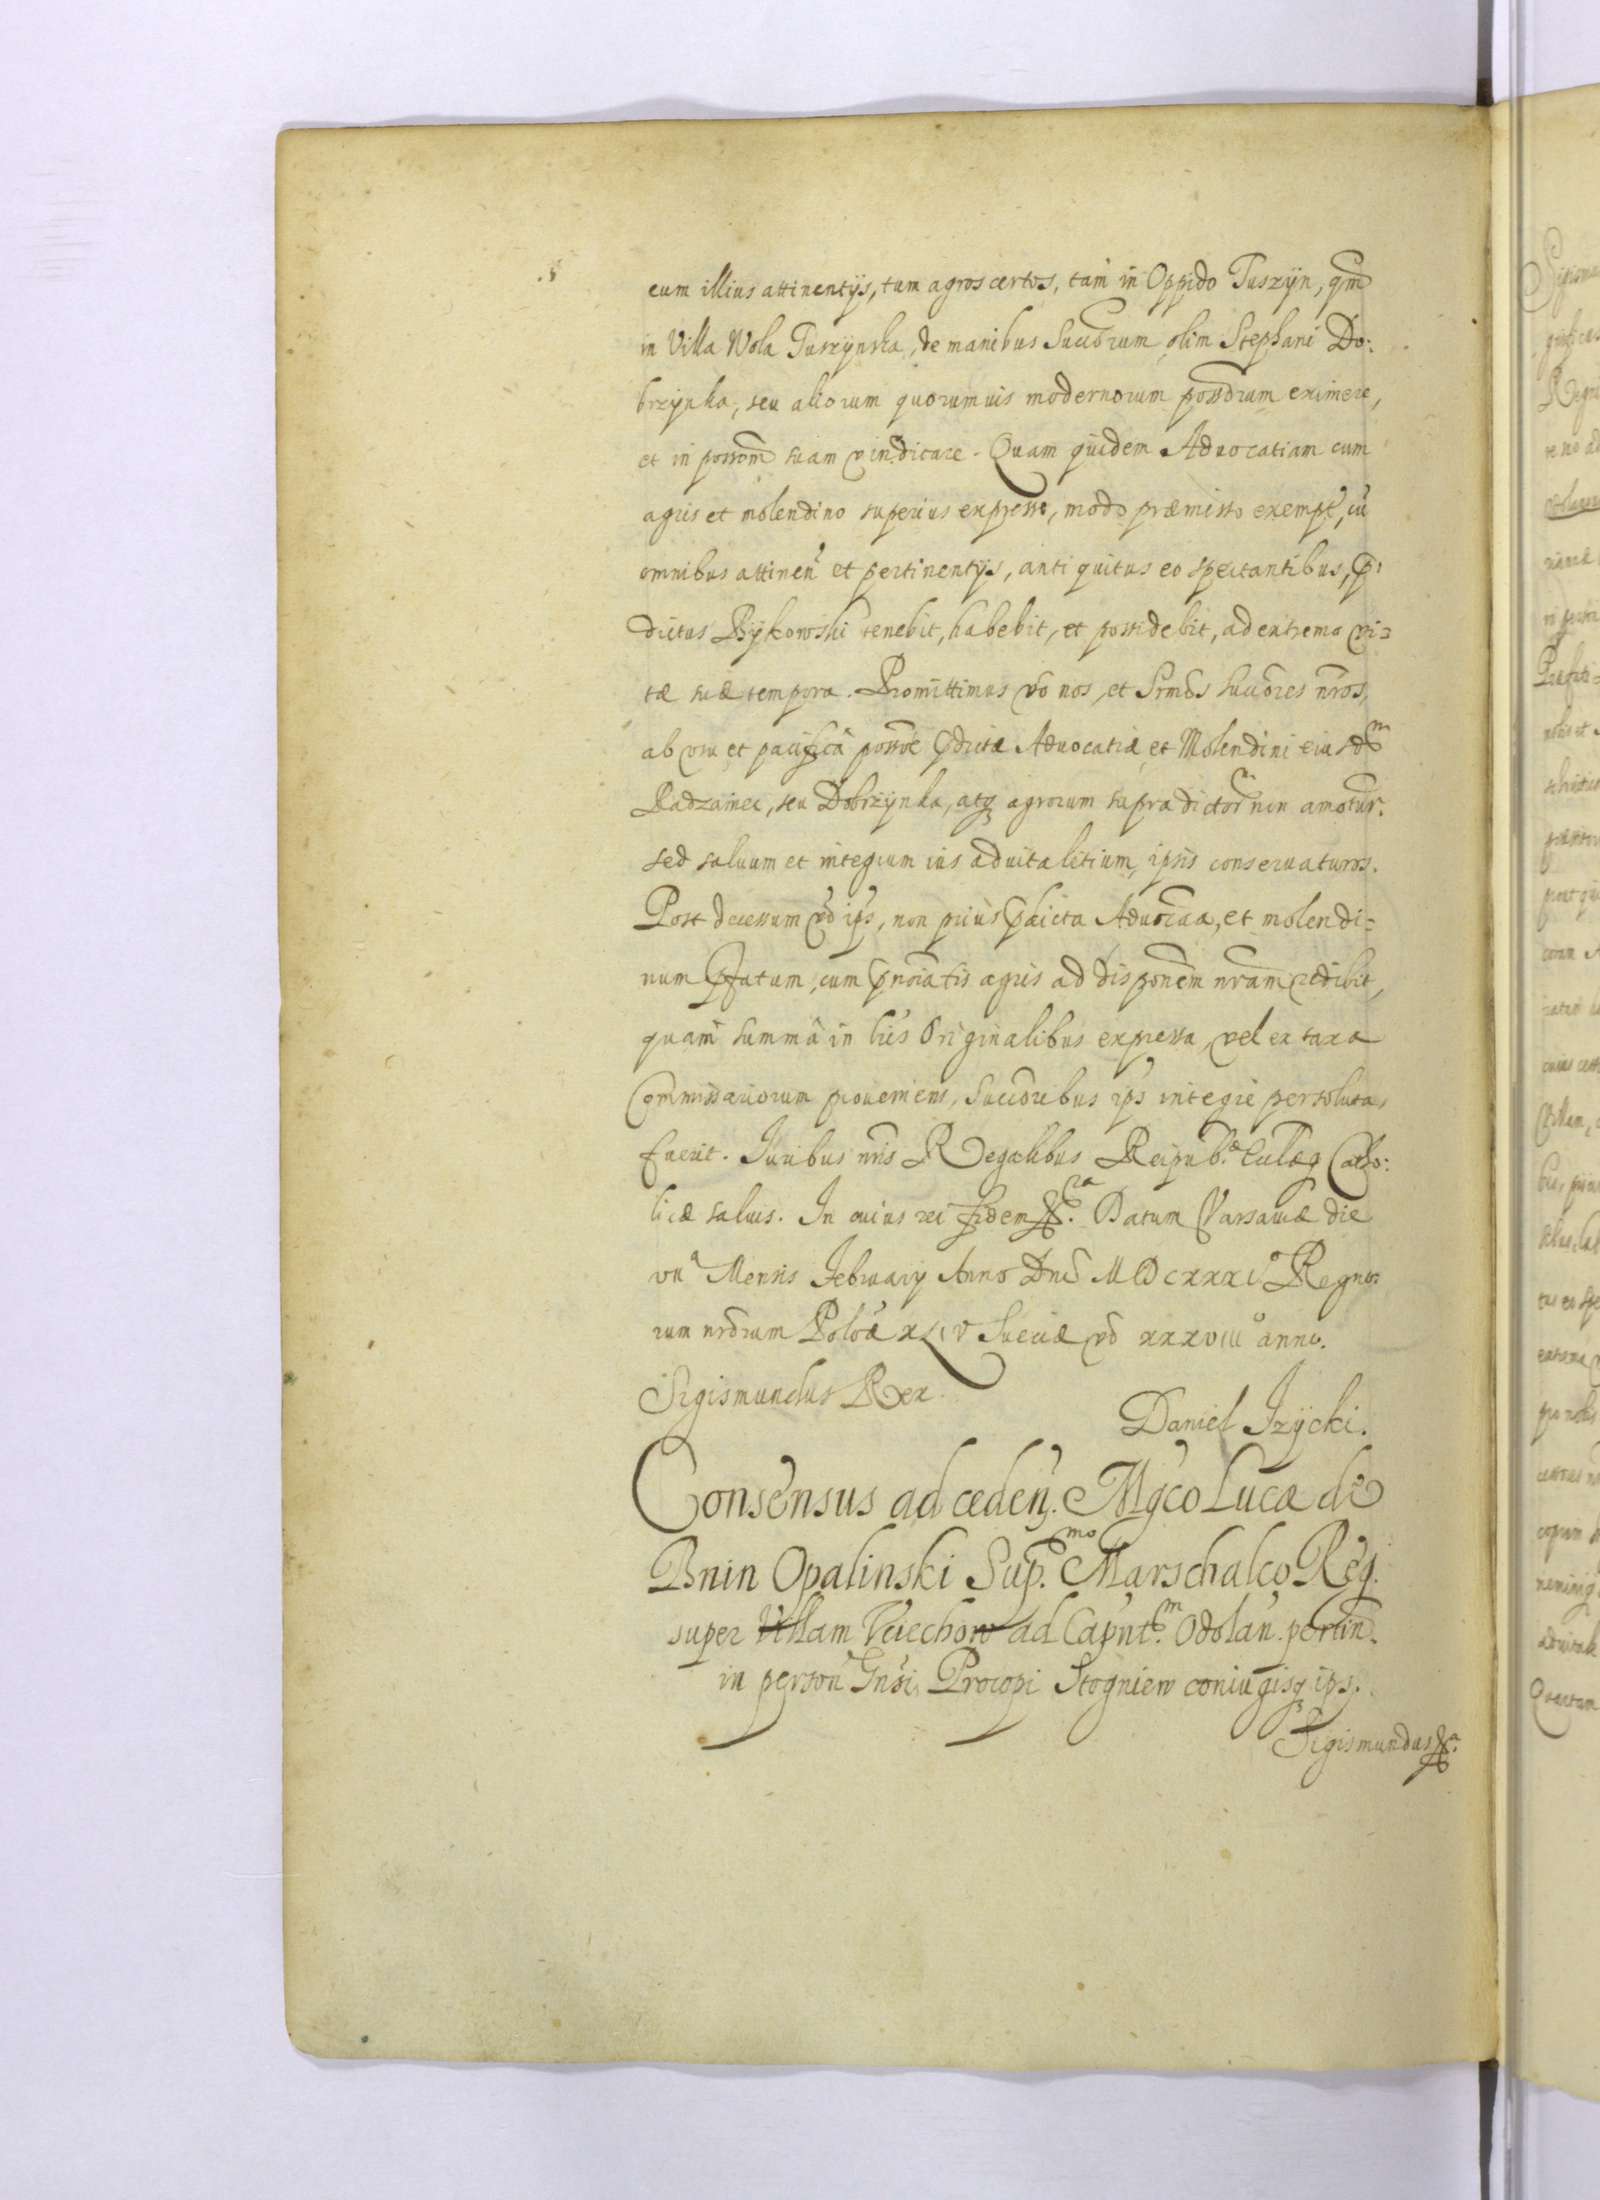 cum illius attinentijs, tum agros certos, tam in Oppido Tuszyn, qm
in Villa Wola Tuszynska, de manibus Succorum olim Stephani Do:
brzynka, seu aliorum quorumuis modernorum possorum eximere,
et in possom suam vindicare. Quam quidem Aduocatiam cum
agris et molendino superius expresso, modo præmisso exempt, cu
omnibus attinen et pertinentijs, antiquitus eo spectantibus, p
dictus Bykowski tenebit, habebit, et possidebit, ad extrema vi=
tæ suæ tempora. Promittimus vo nos, et Srmos succores nros,
ab vsu et pacifica possoe pdictæ Aduocatiæ et Molendini eiusdm
Radzainec, seu Dobrzynka, atq agrorum supradictor non amotur.
sed saluum et integrum ius aduitalitium, ipsis conseruaturos.
Post decessum vo ips, non prius pdicta Aduocaa, et molendi=
num pfatum, cum pnoiatis agris ad disponem nram redibit,
quam summa in lris Originalibus expressa, vel ex taxa
Commissariorum proueniens, succoribus ips integre persoluta
fuerit. Iuribus nris Regalibus Reipub. Ecclæq Catho:
licæ saluis. In cuius rei fidem &ra. Datum Varsauiæ die
VIIa Mensis February Anno Dni MDCXXXIo Regno:
rum nrorum Poloæ XLIV Sueciæ vo XXXVIIIo anno.
Sigismundus Rex.
Daniel Izycki.
Consensus ad ceden. Mgco Lucæ de
Bnin Opalinski Sup.mo Marschalco Reg.
super Villam Wiechow ad Capnt.m Odolan. pertin.
in person Gnsi Procopi Stogniew coniugisq ips.
Sigismundus &a.